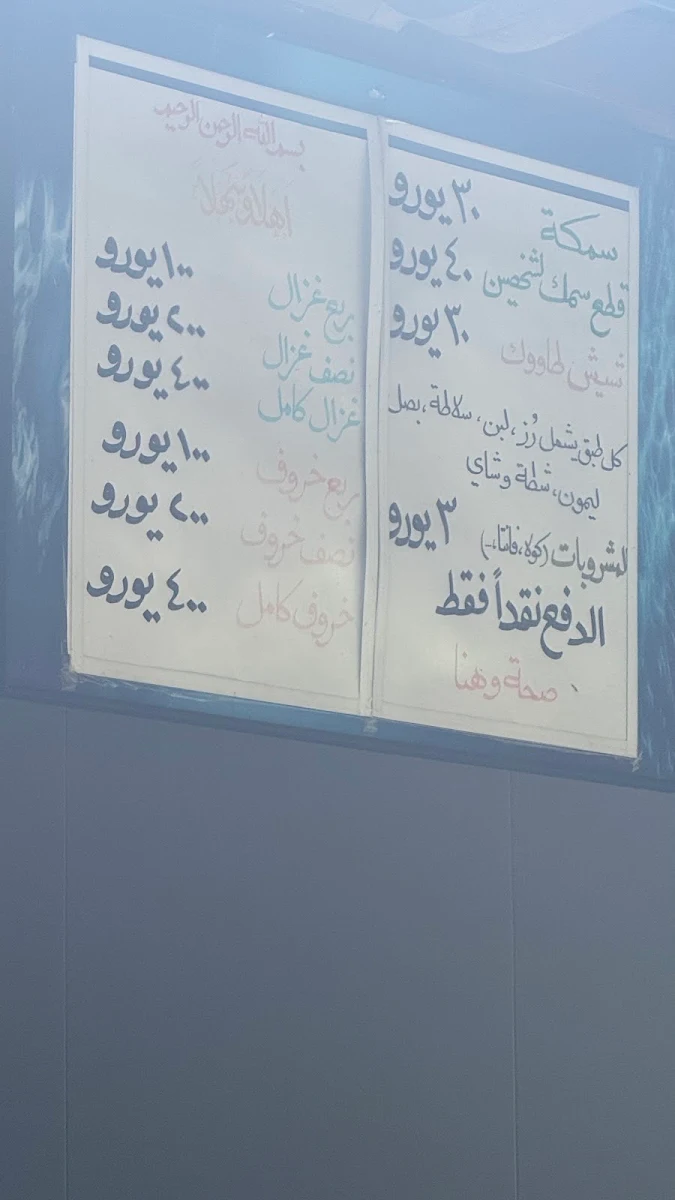 بسم الله الرحمن الرحيم
أهلاً وسهلاً
ربع غزال ١٠٠ يورو
نصف غزال ٢٠٠ يورو
غزال كامل ٤٠٠ يورو
ربع خروف ١٠٠ يورو
نصف خروف ٢٠٠ يورو
خروف كامل ٤٠٠ يورو
سمكة ٣٠ يورو
قطع سمك لشخصين ٤٠ يورو
شيش طاووك ٣٠ يورو
كل طبق يشمل رُز، لبن، سلاطة، بصل
ليمون، شطة وشاي
المشروبات (كولا، فانتا،..) ٣ يورو
الدفع نقداً فقط
صحة وهنا